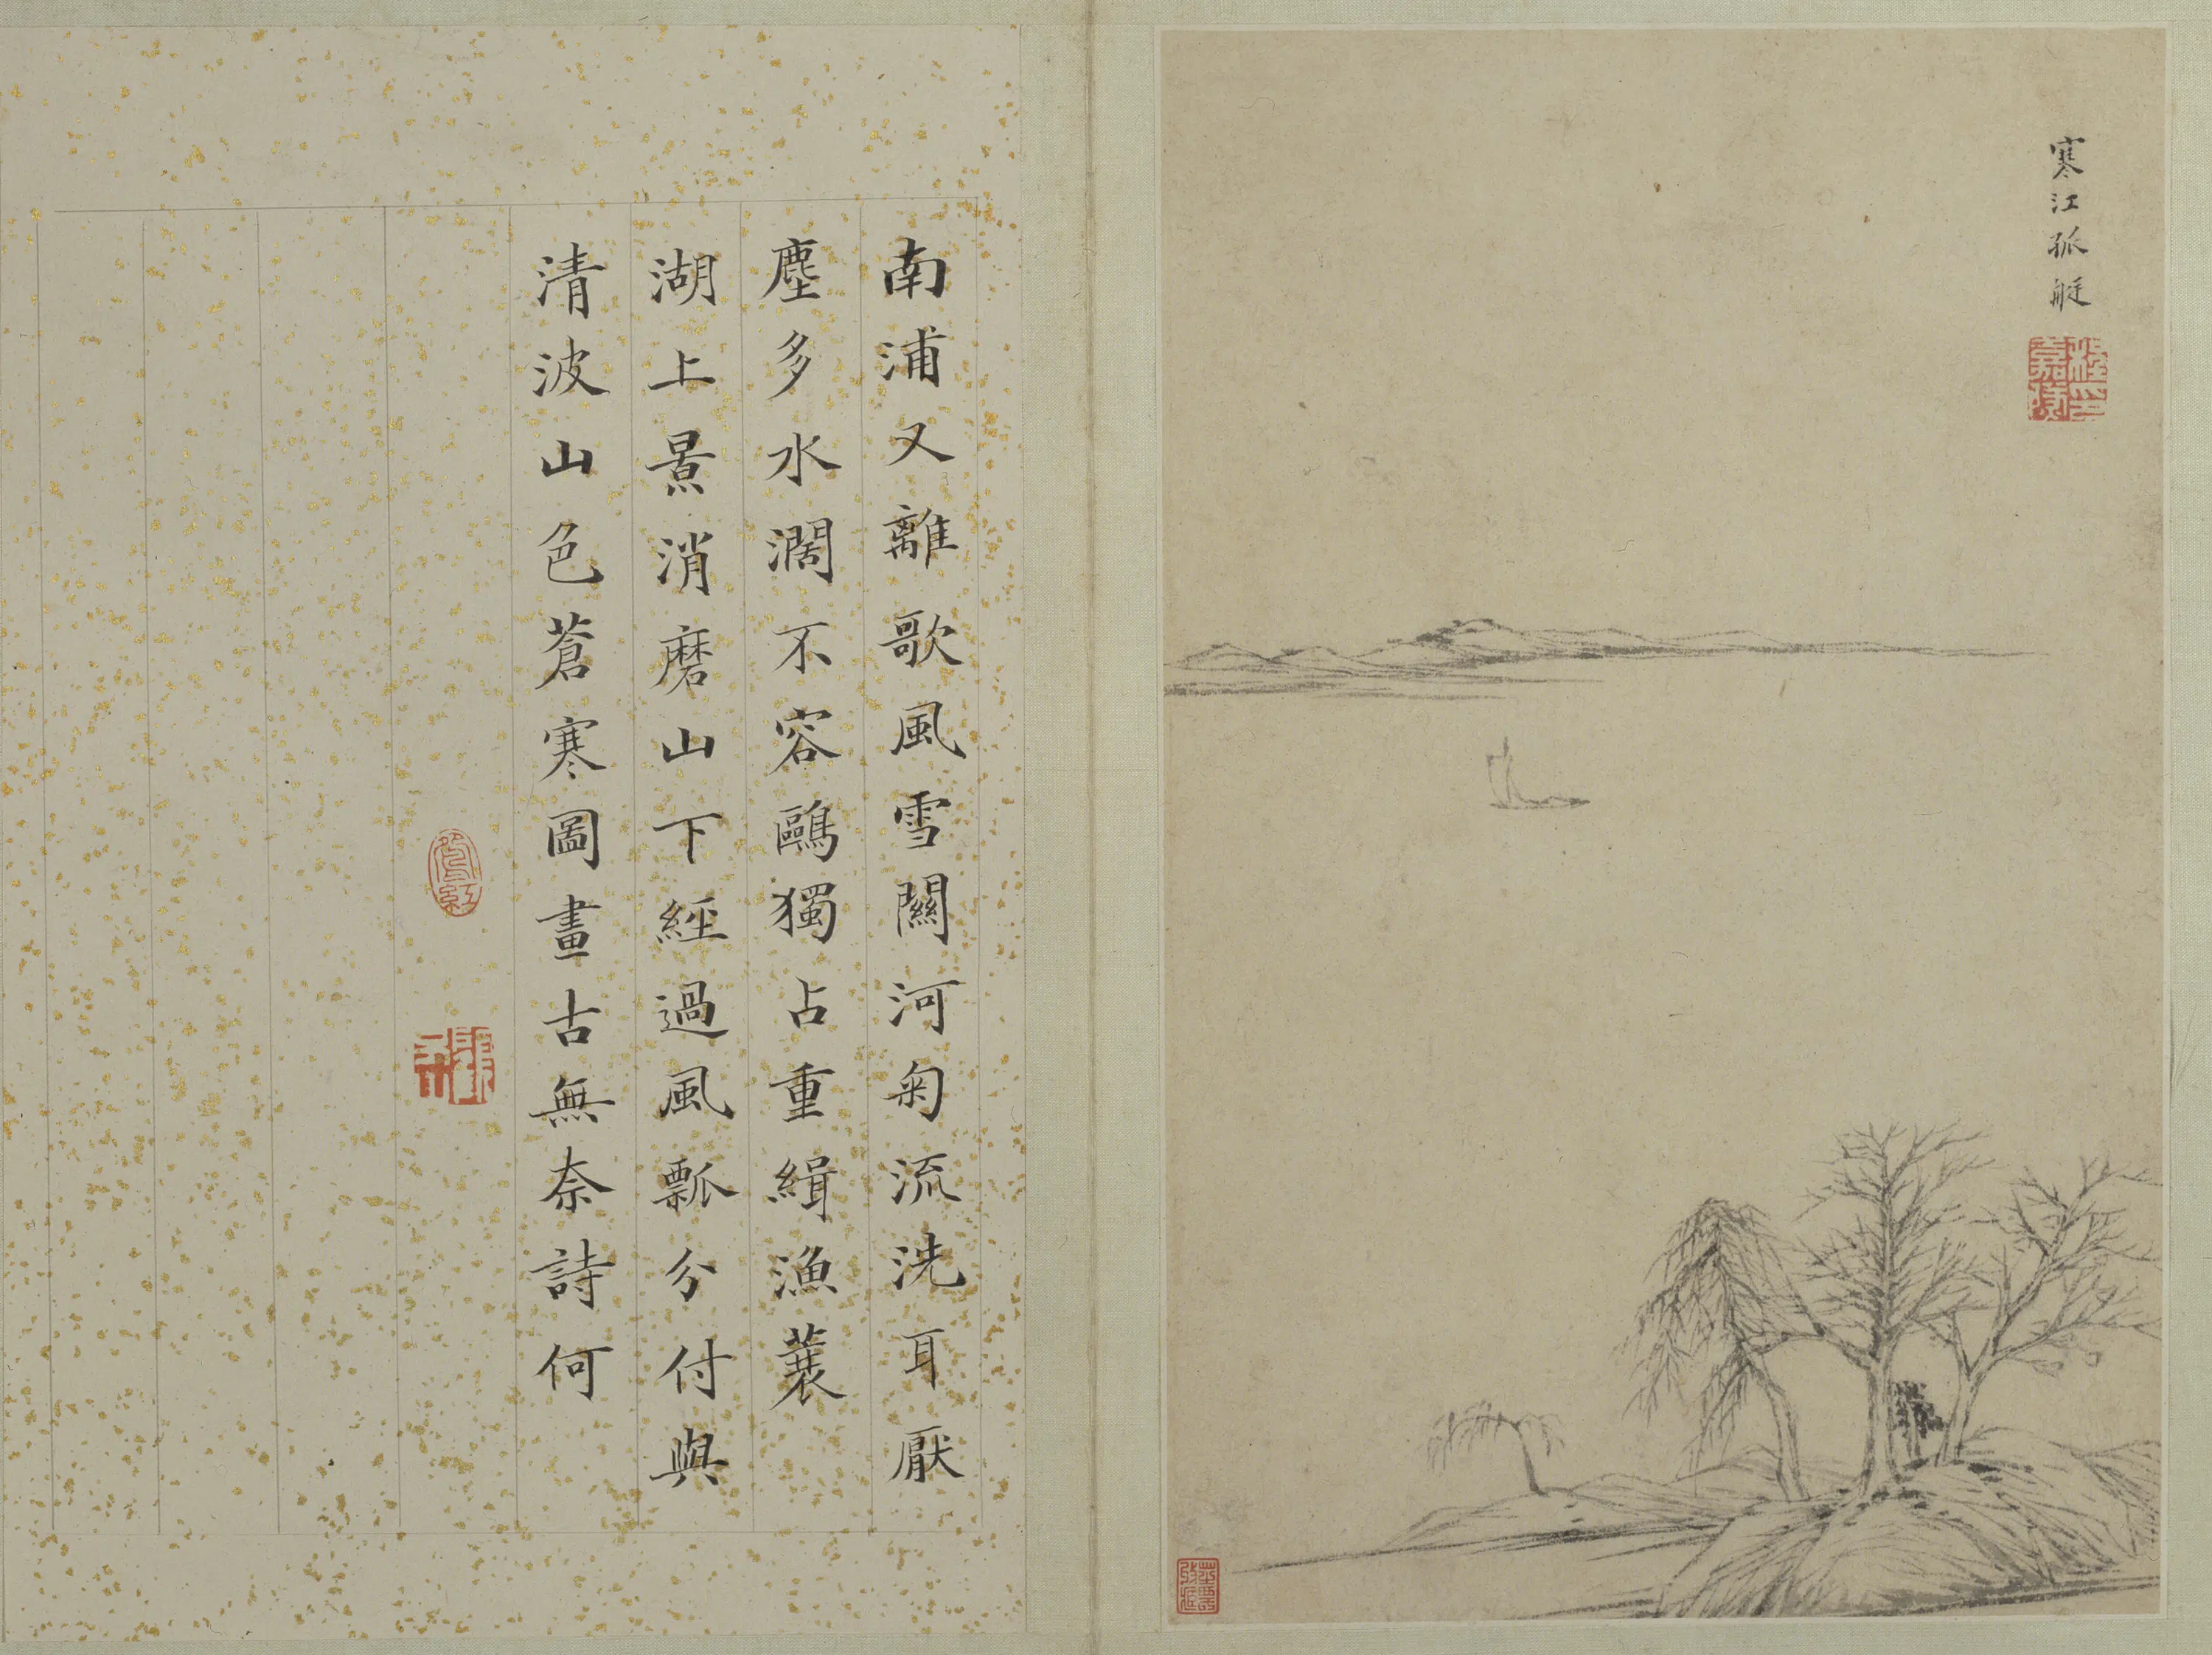 寒江孤艇
南浦又離歌風雪關河菊流洗耳厭
塵多水濶不容鷗獨占重緝漁蓑
湖上景消磨山下經過風瓢分付與
清波山色蒼寒圖畫古無奈詩何